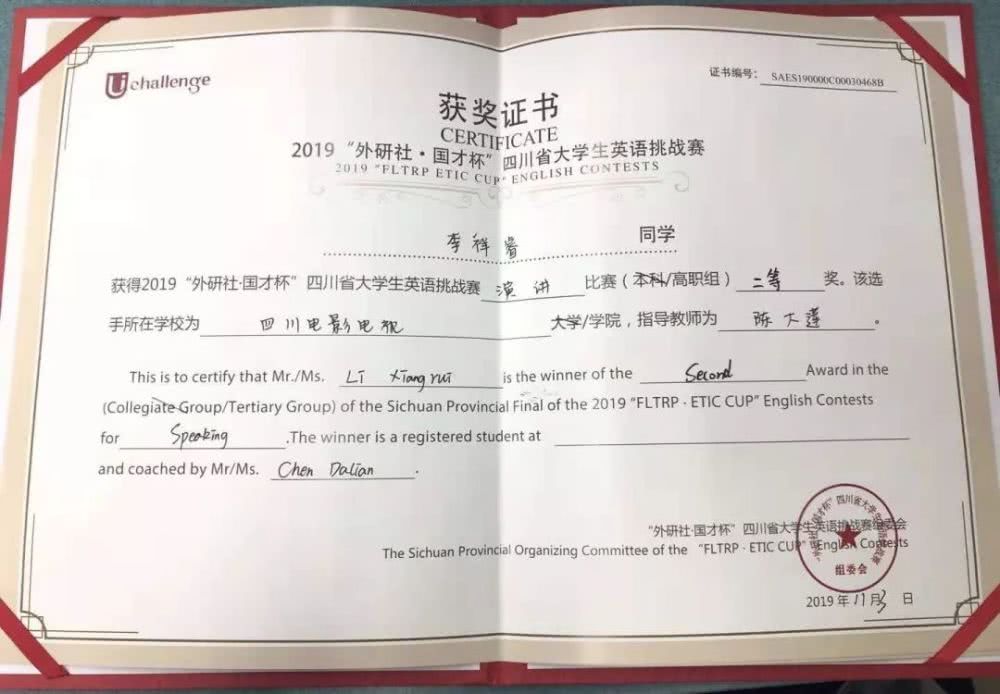 Uchallenge
证书编号： SAES190000C00030468B
获奖证书
CERTIFICATE
2019 “外研社·国才杯” 四川省大学生英语挑战赛
2019 "FLTRP ETIC CUP" ENGLISH CONTESTS
李祥睿 同学
获得2019 “外研社·国才杯” 四川省大学生英语挑战赛 演讲 比赛（本科/高职组）二等 奖。该选
手所在学校为 四川电影电视 大学/学院，指导教师为 陈大莲 。
This is to certify that Mr./Ms. Li Xiangrui is the winner of the Second Award in the
(Collegiate Group/Tertiary Group) of the Sichuan Provincial Final of the 2019 "FLTRP · ETIC CUP" English Contests
for Speaking .The winner is a registered student at
and coached by Mr/Ms. Chen Dalian .
“外研社·国才杯” 四川省大学生英语挑战赛组委会
The Sichuan Provincial Organizing Committee of the "FLTRP · ETIC CUP" English Contests
“外研社·国才杯” 四川省大学生英语挑战赛
组委会
2019 年 11 月 3 日